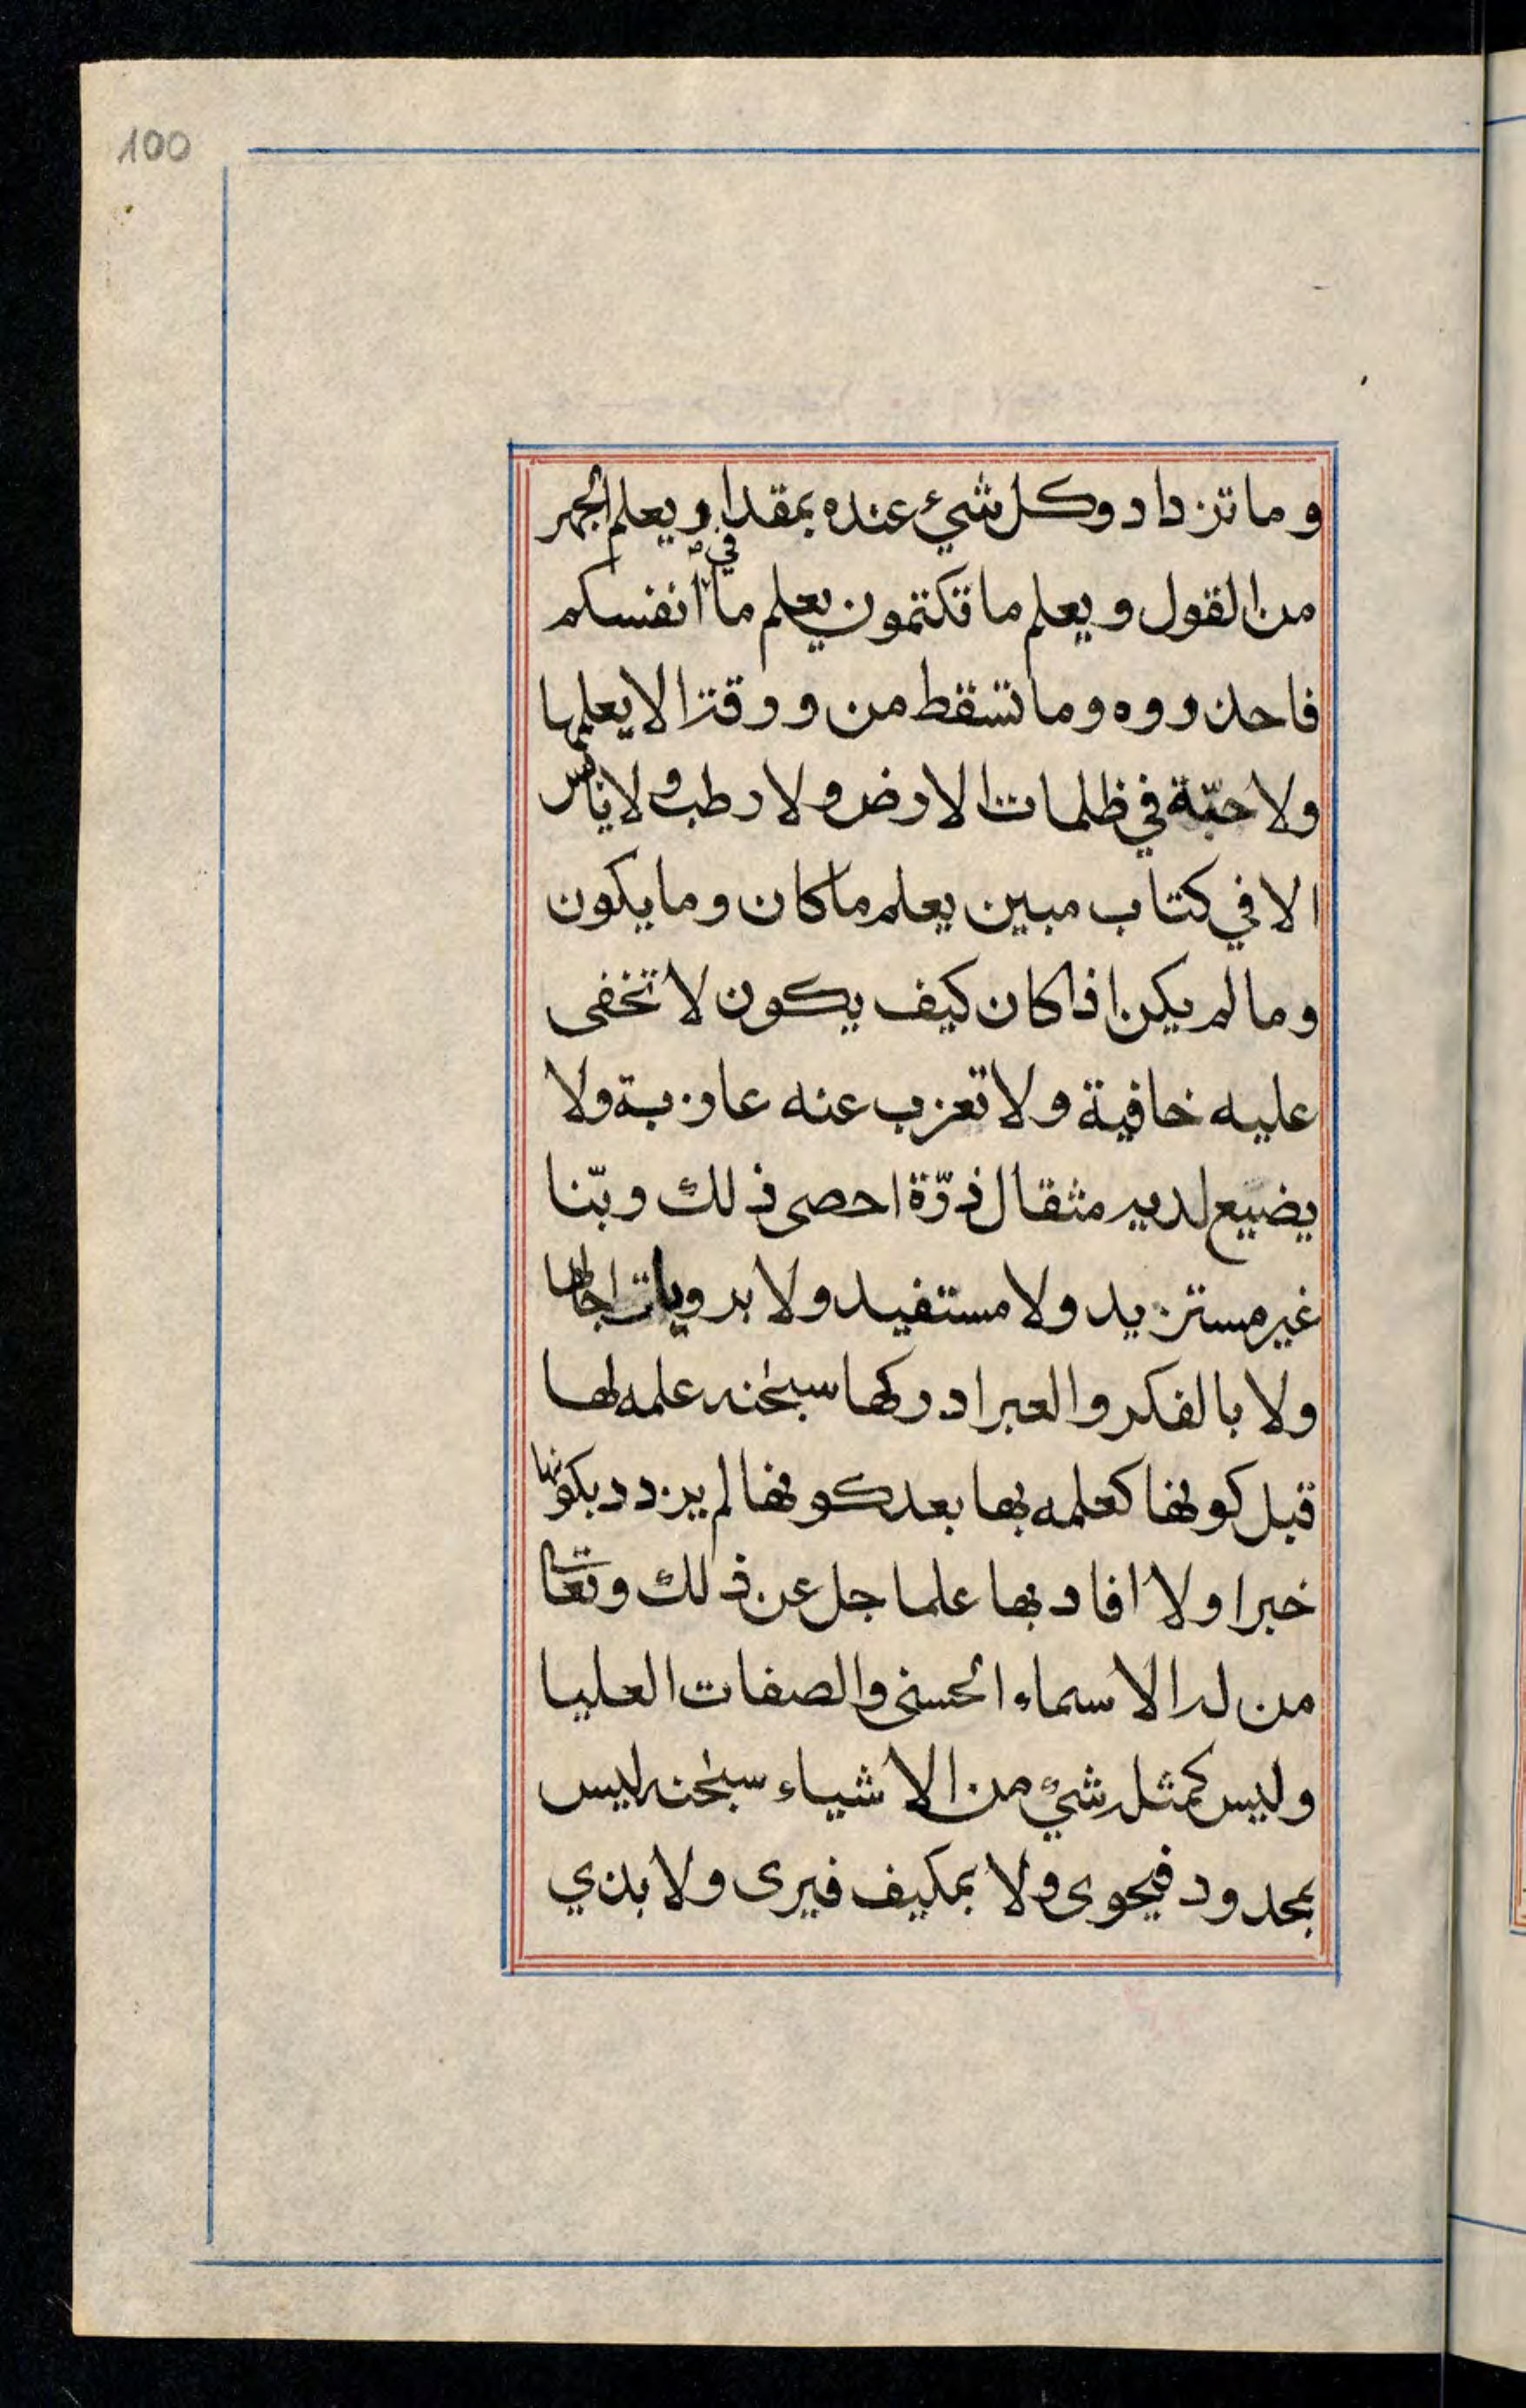 100
وما تزداد وكل شيئ عنده بمقدار ويعلم الجهر
من القول ويعلم ما تكتمون يعلم ما في انفسكم
فاحذروه وما تسقط من ورقة الا يعلمها
ولا حبّة في ظلمات الارض ولا رطب ولا يابس
الا في كتاب مبين يعلم ما كان وما يكون
وما لم يكن اذا كان كيف يكون لا تخفى
عليه خافية ولا تعزب عنه عازبة ولا
يضيع لديه مثقال ذرّة احصى ذلك ربّنا
غير مستزيد ولا مستفيد ولا برويات اجالها
ولا بالفكر والعبر ادركها سبحنه علمه لها
قبل كونها كعلمه بها بعد كونها لم يزدد بكونها
خبرا ولا افاد بها علما جل عن ذلك وتعا
من له الاسماء الحسنى والصفات العليا
وليس كمثله شيئ من الاشياء سبحنه ليس
بمحدود فيحوى ولا بمكيف فيرى ولا بذي